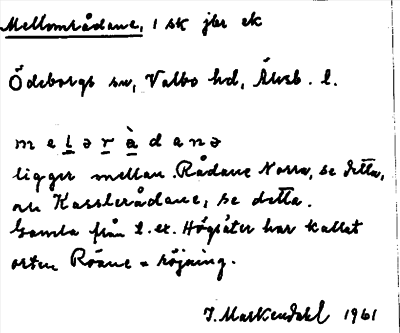 Mellområdane, 1 sk jbr ek
Ödeborgs sn, Valbo hd, Älvsb. l.
m e l ə r à d a n ə
ligger mellan Rådane Norra, se detta,
och Kasslerådane, se detta.
Gamla från L. ex. Högsäter har kallat
orten Röane = röjning.
J. Markendahl 1961